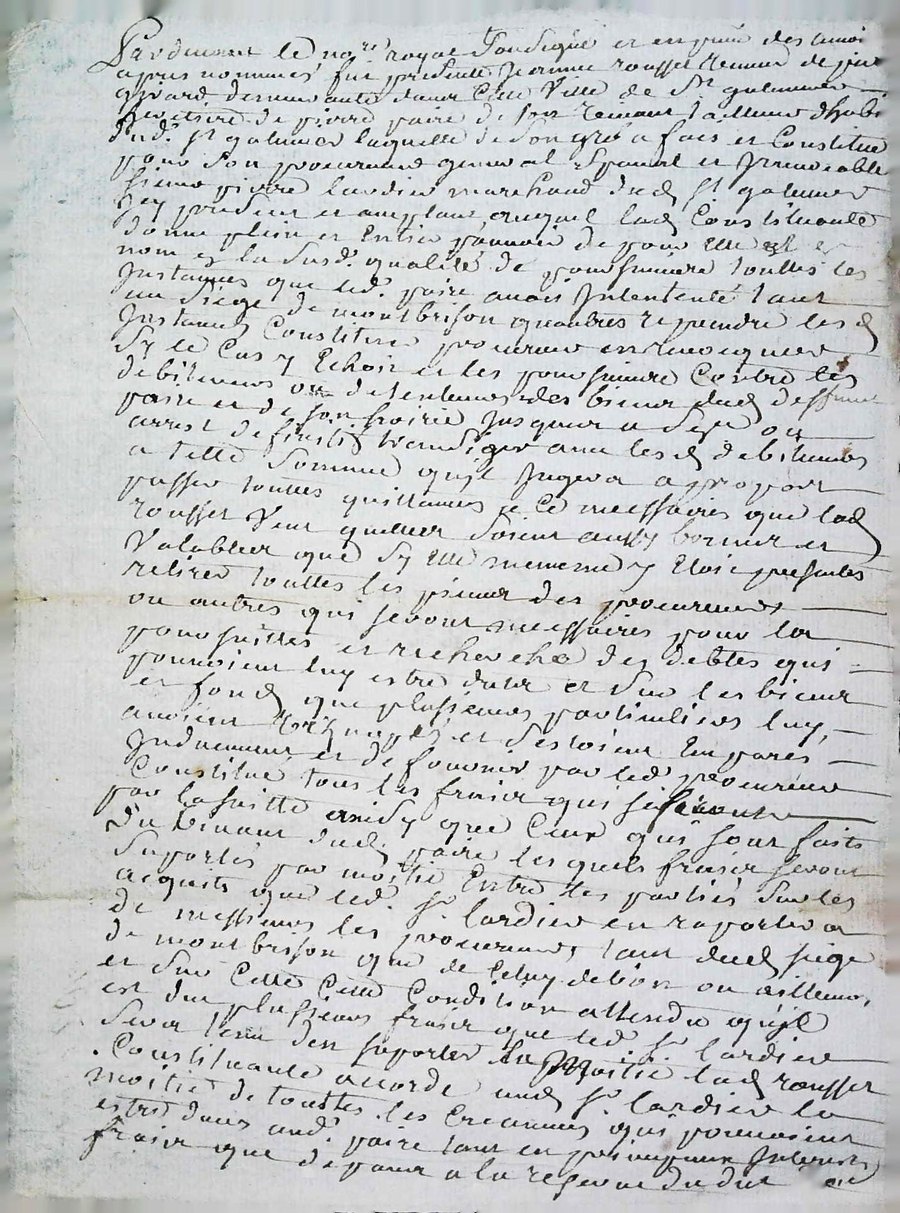 Pardevant le no.re royal soussigné et en pnce des temoins
apres nommés fut presente Jeanne rousset veuve de
demeurante dans cette ville de St galmier
heritiere de pierre paire de son vivant tailleur dhabi
dud. St galmier laquelle de son gré a fait et Constitue
pour son procureur general special et Irrevocable
sieur pierre lardier marchand dud St galmier
Icy present et acceptant auquel lad Constituante
donne plein et Entier pouvoir de pour elle et
nom et la susd. qualité de poursuivre touttes les
Instances que led. paire avait Intententé tant
au siege de montbrison qu'autres reprendre les d
Instances Constituer procureur en revocquer
sy le Cas y Echoit et les poursuivre Contre les
debiteurs ou detenteurs des biens dud deffunt
paire et de son hoirie Jusques a sentence ou
arrest definitif transiger avec les d debiteurs
a telle somme qu'il Jugera a propos
passer touttes quittances a Ce necessaires que lad
rousset veut quelles soient aussy bonnes et
valables que sy elle mesme y Etoit presente
retirer touttes les pieces des procureurs
ou autres qui seront necessaires pour la
poursuittes et recherche des debtes qui
pourroient luy estre dues et sur les biens
et fond que plusieurs particuliers luy
auroient et sestoient Emparés
Induement et de fournir par led procureur
Constitué tous les fraix qui se feront
par la suitte ainsy que Ceux qui sont faits
du vivant dud. paire lesquels fraix seront
suportés par moitié Entre les parties sur les
acquits que led. sr. lardier en raportera
de messieurs les procureurs, tant dud siege
de montbrison que de Celuy de lion ou ailleurs,
et sur Cette Cette Condition attendu qu'il
est du plusieurs fraix que led sr lardier
sera tenu den suporter la moitié lad rousset
Constituante accorde aud sr lardier la
moitié de touttes les Creances qui pourroient
estre dues aud. paire tant en principaux Interests
fraix que depans a la reserve du dit